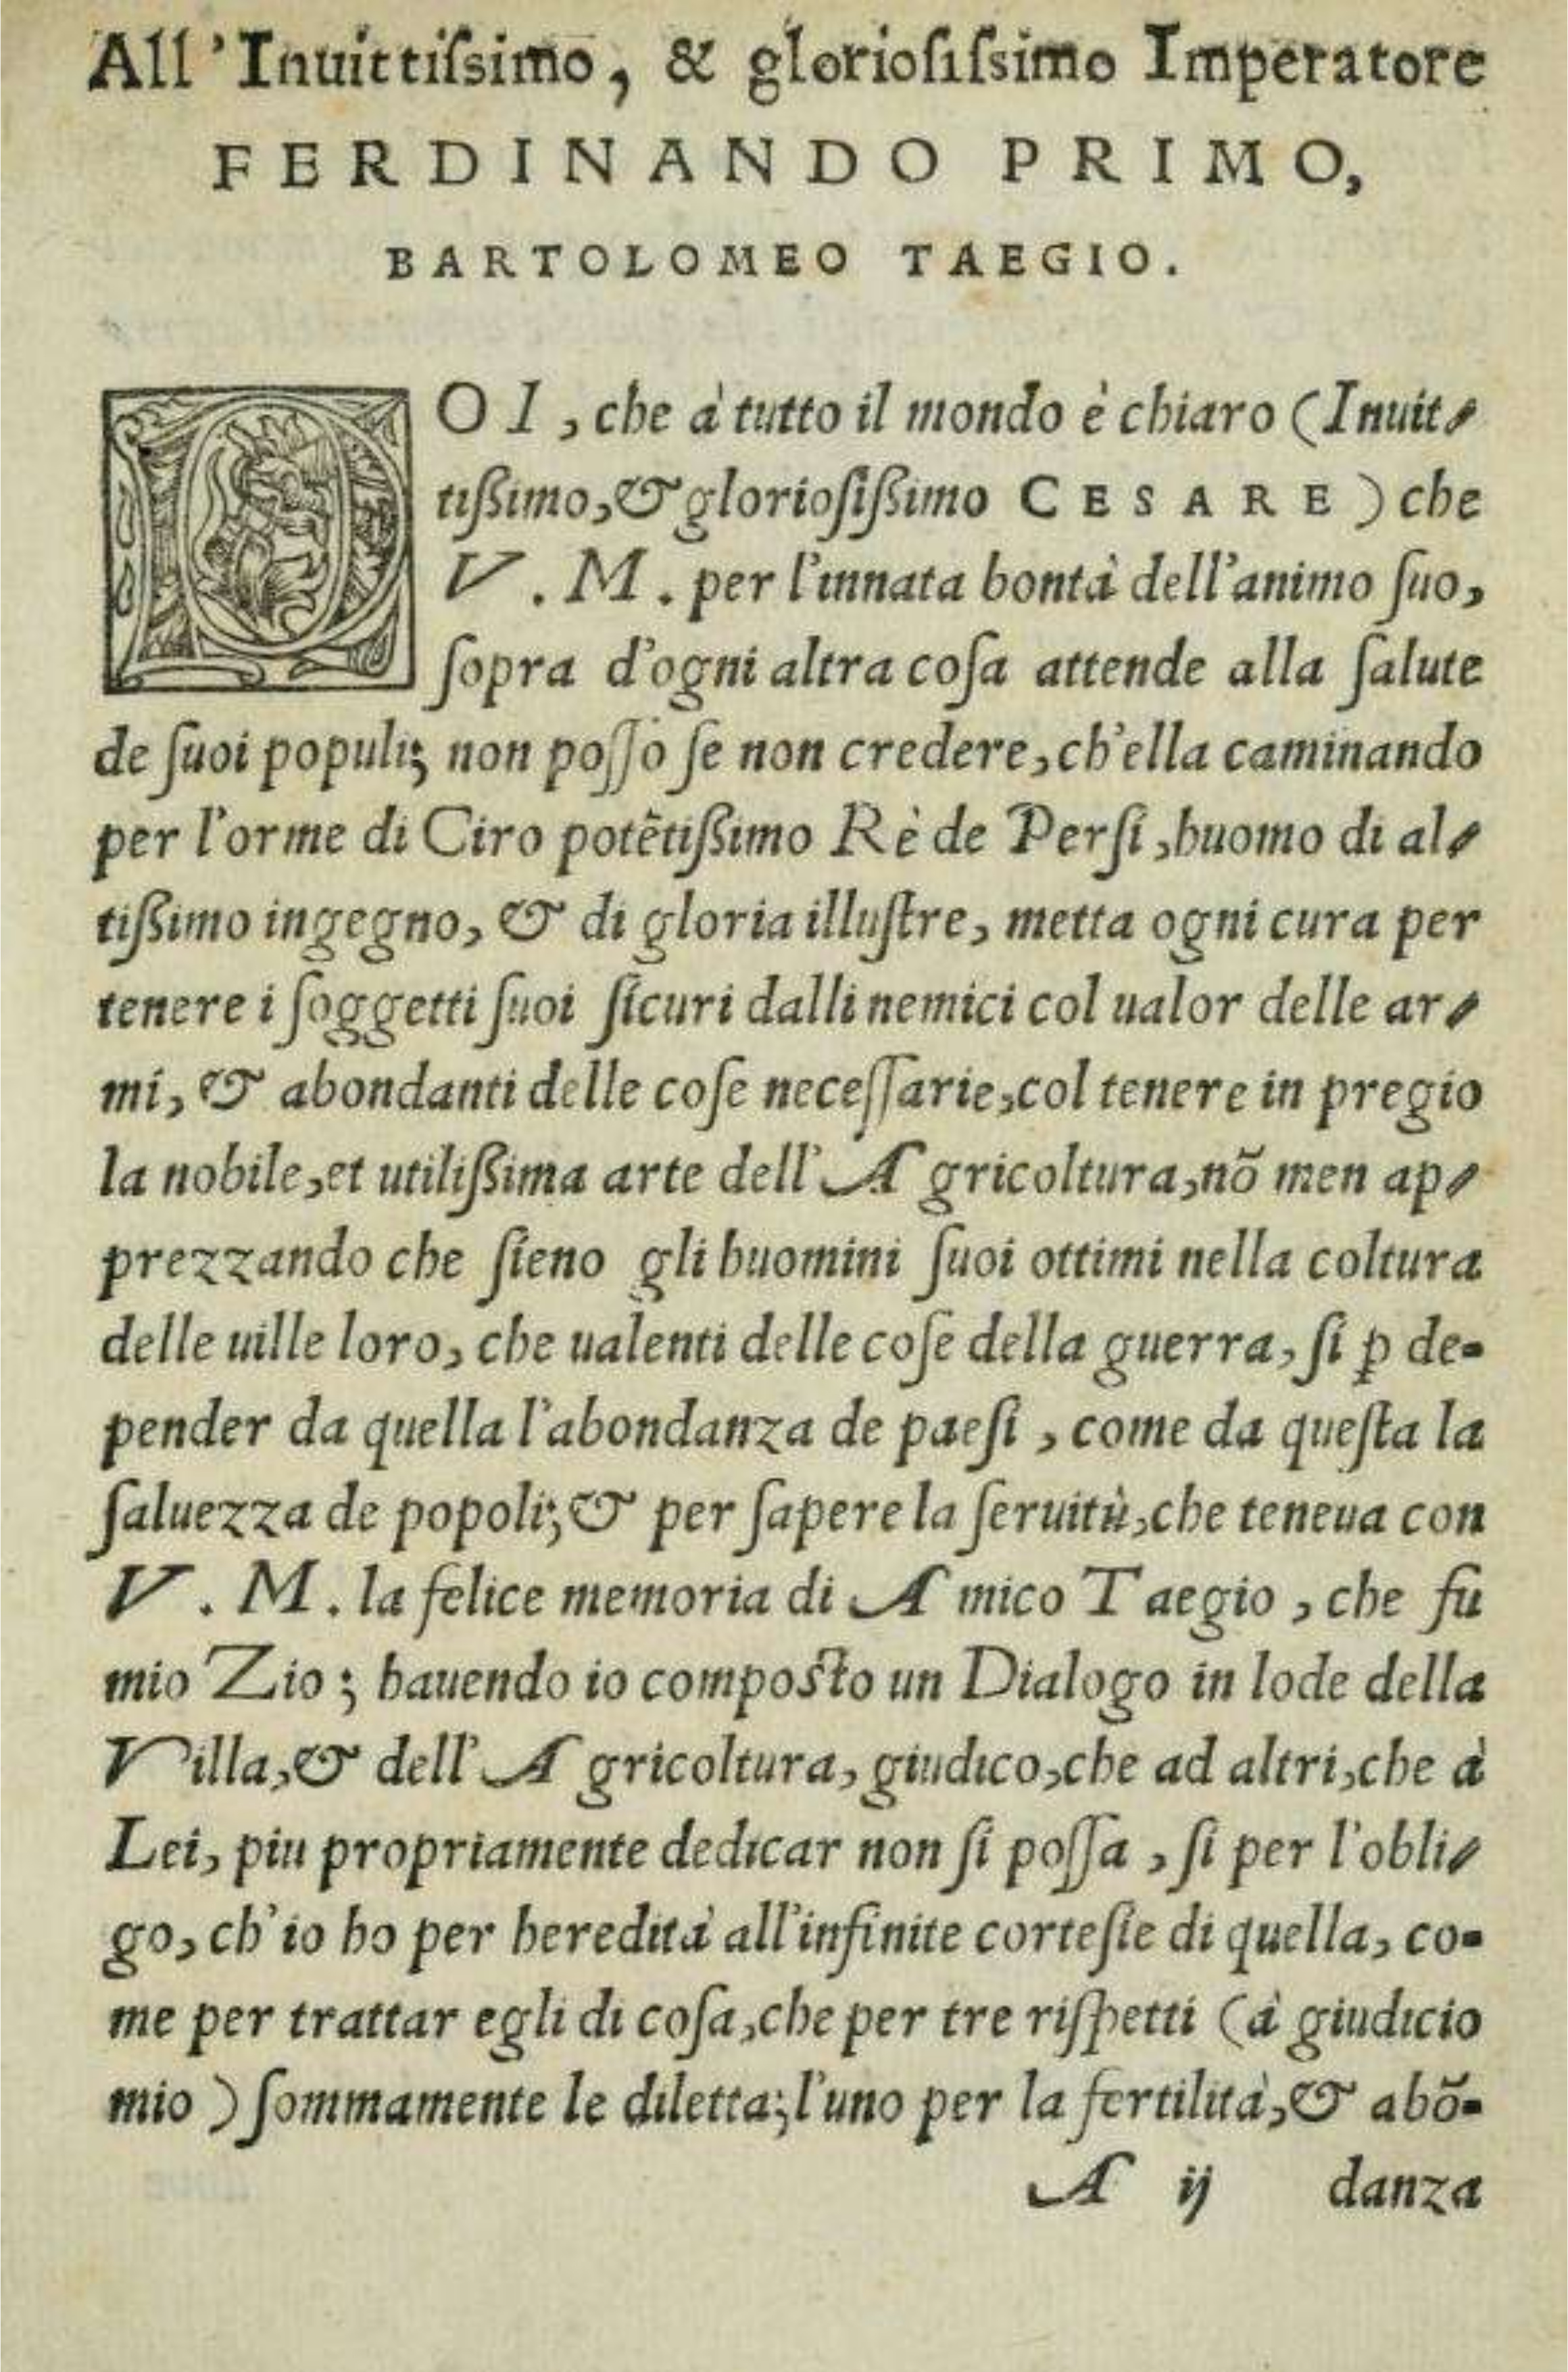 All'Inuittiſsimo, & glorioſiſsimo Imperatore
FERDINANDO PRIMO,
BARTOLOMEO TAEGIO.
POI, che à tutto il mondo è chiaro (Inuit-
tißimo, & glorioſißimo CESARE) che
V. M. per l'innata bontà dell'animo ſuo,
ſopra d'ogni altra coſa attende alla ſalute
de ſuoi populi; non poſſo ſe non credere, ch'ella caminando
per l'orme di Ciro potẽtißimo Rè de Perſi, huomo di al-
tißimo ingegno, & di gloria illuſtre, metta ogni cura per
tenere i ſoggetti ſuoi ſicuri dalli nemici col ualor delle ar-
mi, & abondanti delle coſe neceſſarie, col tenere in pregio
la nobile, et utilißima arte dell'Agricoltura, nõ men ap-
prezzando che ſieno gli huomini ſuoi ottimi nella coltura
delle uille loro, che ualenti delle coſe della guerra, ſi ꝑ de-
pender da quella l'abondanza de paeſi, come da queſta la
ſaluezza de popoli; & per ſapere la ſeruitù, che teneua con
V. M. la felice memoria di Amico Taegio, che fu
mio Zio; hauendo io compoſto un Dialogo in lode della
Villa, & dell'Agricoltura, giudico, che ad altri, che à
Lei, piu propriamente dedicar non ſi poſſa, ſi per l'obli-
go, ch'io ho per heredità all'infinite corteſie di quella, co-
me per trattar egli di coſa, che per tre riſpetti (à giudicio
mio) ſommamente le diletta; l'uno per la fertilità, & abõ-
A ij danza